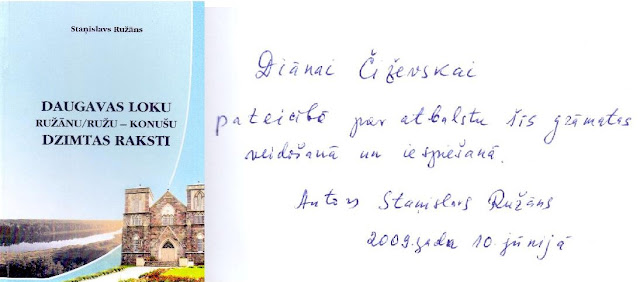 Staņislavs Ružāns
DAUGAVAS LOKU
RUŽĀNU/RUŽU – KONUŠU
DZIMTAS RAKSTI
Diānai Čiževskai
pateicībā par atbalstu šīs grāmatas
veidošanā un iespiešanā.
Autors Staņislavs Ružāns
2009.gada 10.jūnijā